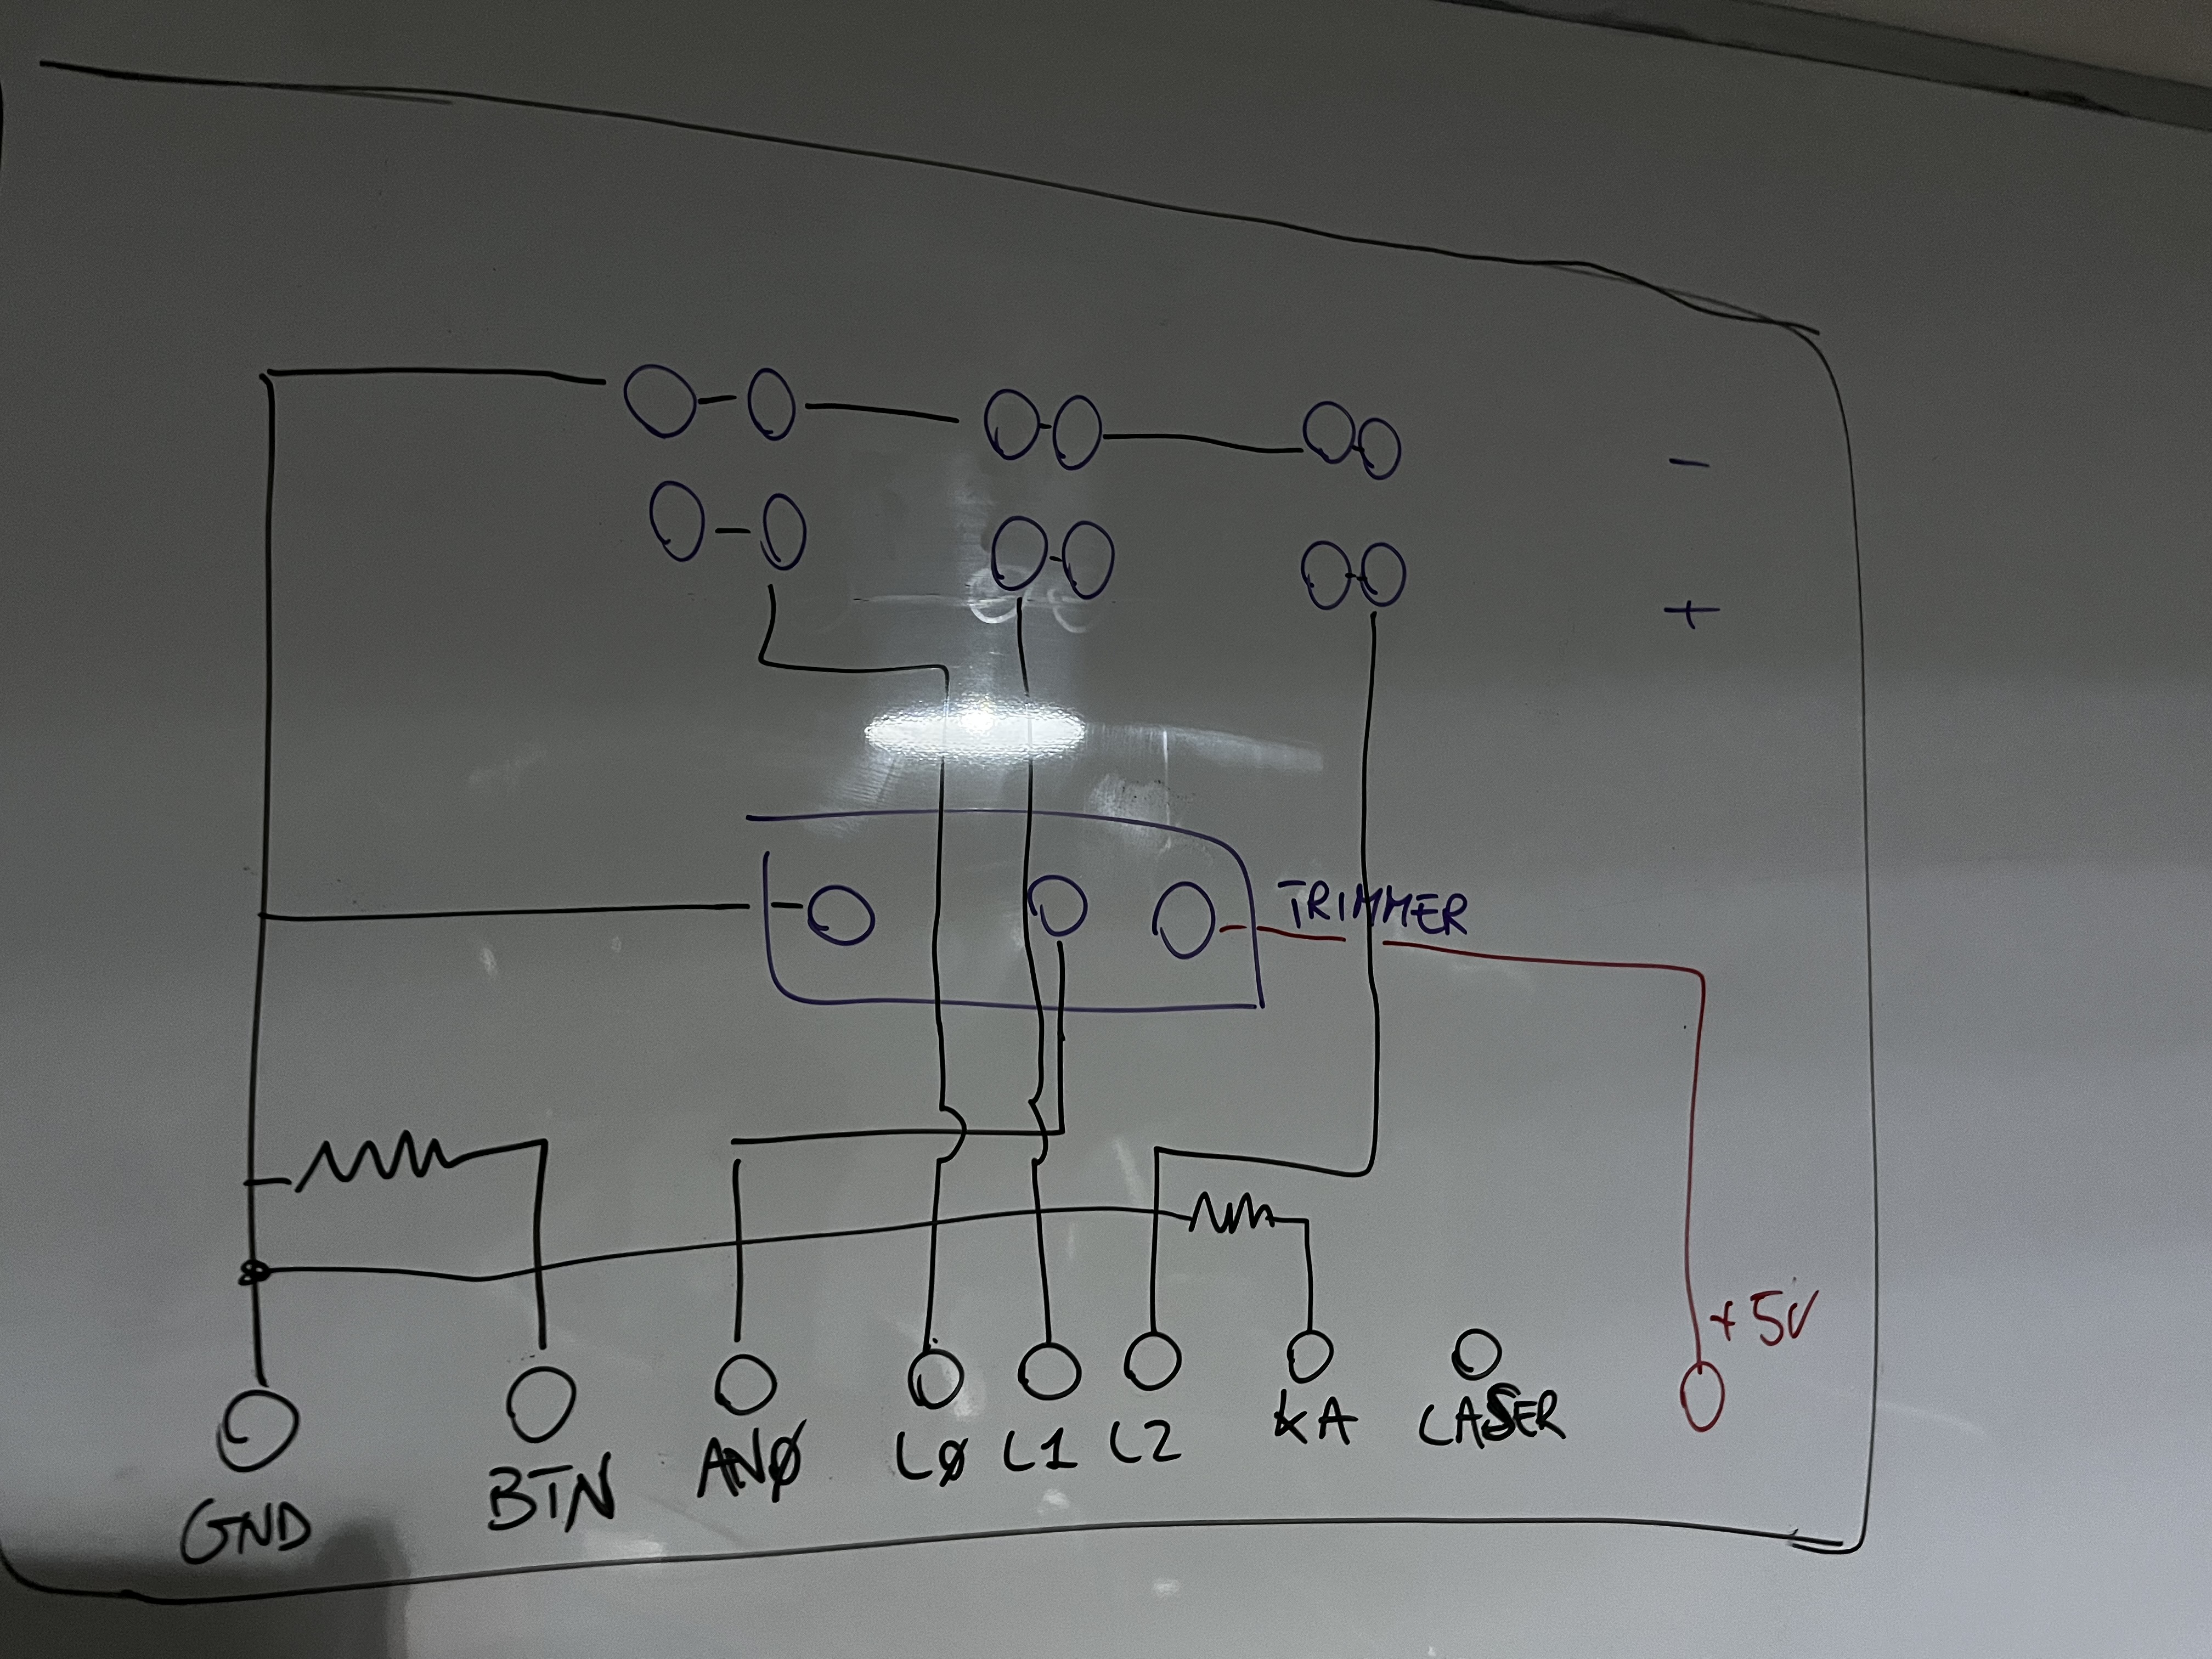 -
+
TRIMMER
+5V
GND
BTN
ANØ
LØ
L1
L2
KA
LASER